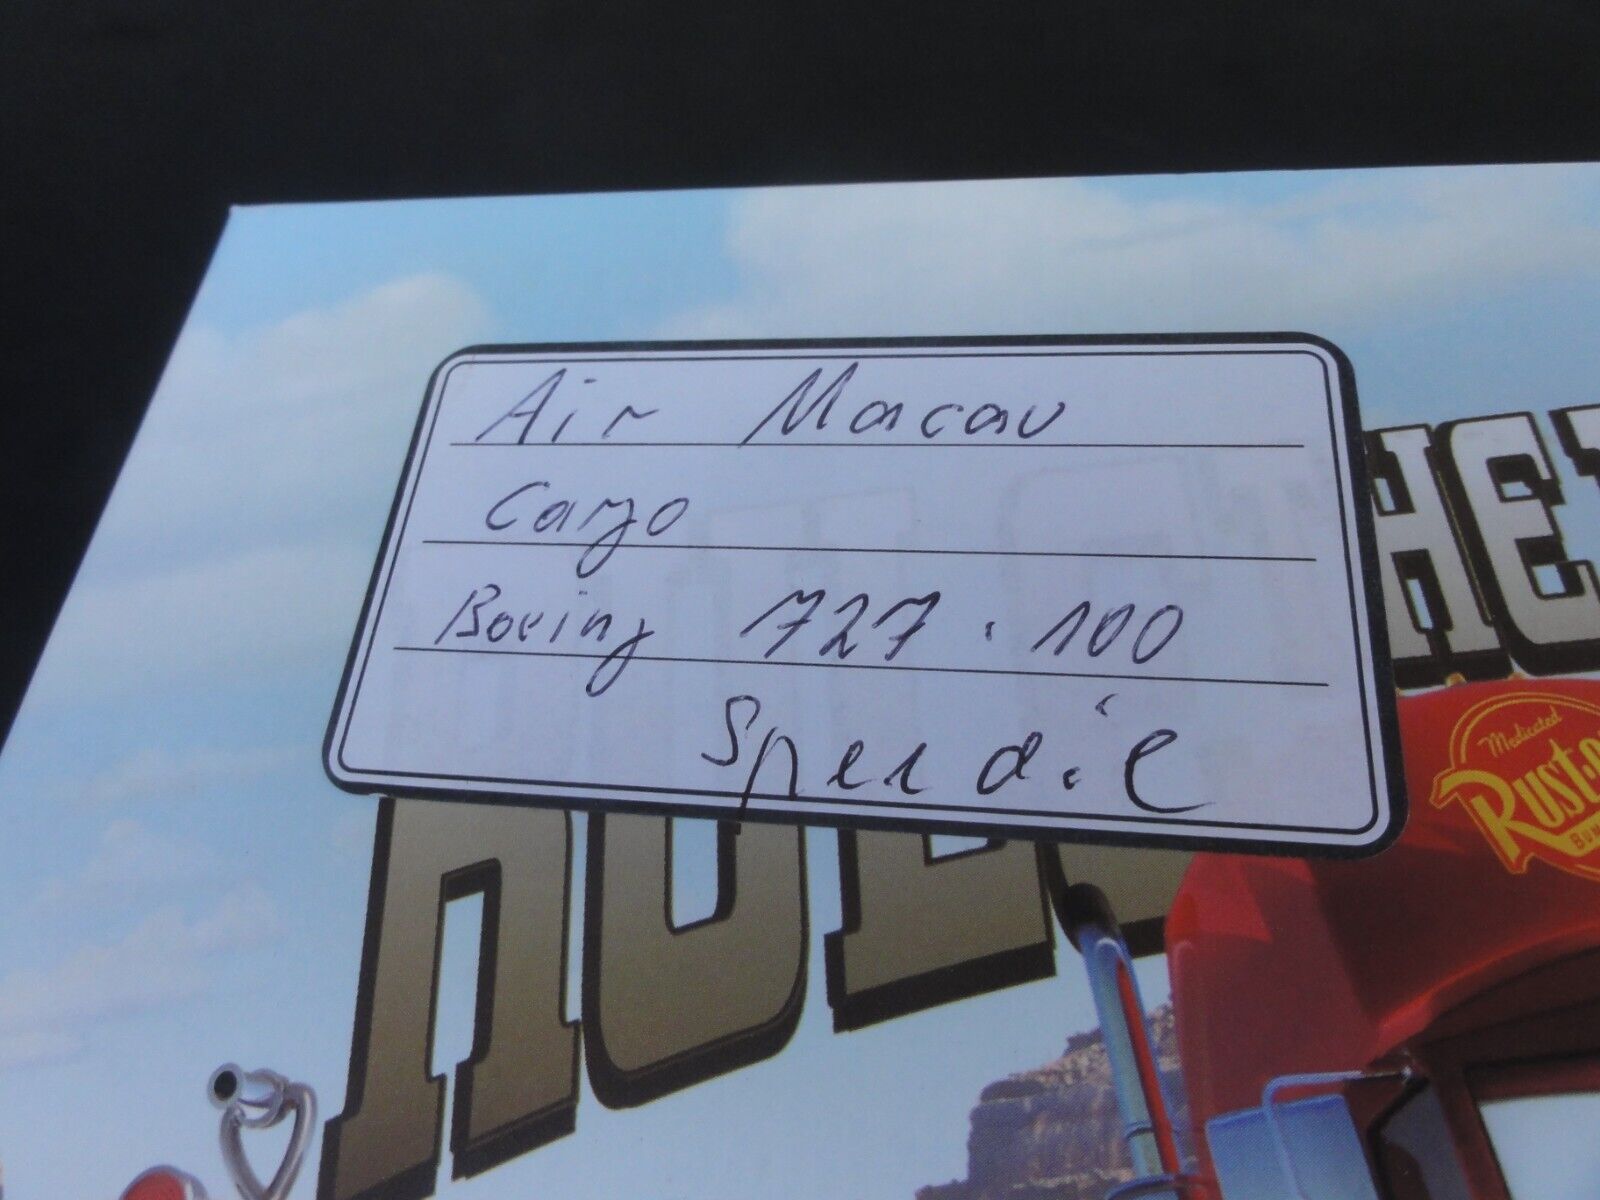 Air Macau
Cargo
Boeing 727-100
HE
Medicated
RUST-
BUM